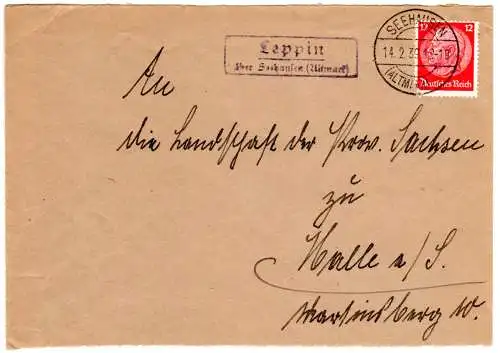 Leppin
über Seehausen (Altmark)
SEEHAUSEN
14.2.3
(ALTM
12 12
Deutsches Reich
An
die Landschaft der Prov. Sachsen
zu
Halle a/S.
Martinsberg 10.